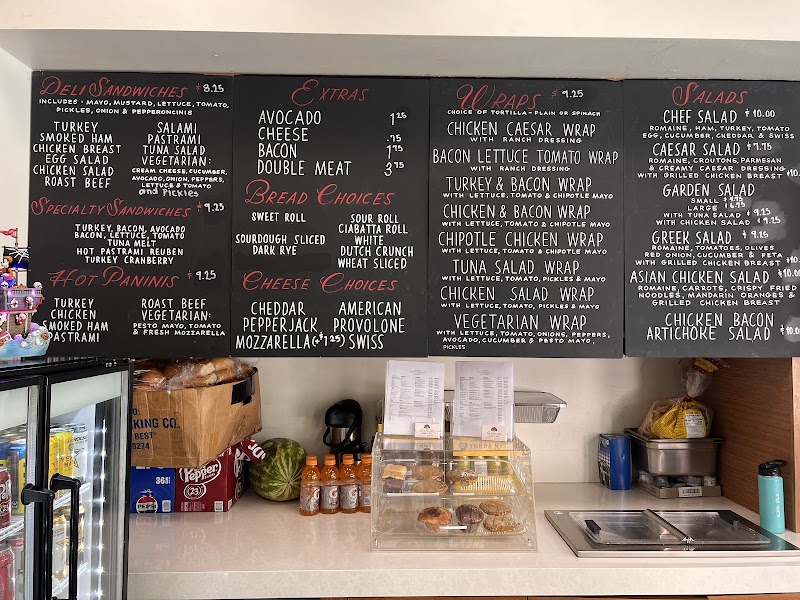 Deli Sandwiches $8.25
INCLUDES: MAYO, MUSTARD, LETTUCE, TOMATO,
PICKLES, ONION & PEPPERONCINIS
TURKEY
SMOKED HAM
CHICKEN BREAST
EGG SALAD
CHICKEN SALAD
ROAST BEEF
SALAMI
PASTRAMI
TUNA SALAD
VEGETARIAN:
CREAM CHEESE, CUCUMBER,
AVOCADO, ONION, PEPPERS,
LETTUCE & TOMATO
and Pickles
Specialty Sandwiches $9.25
TURKEY, BACON, AVOCADO
BACON, LETTUCE, TOMATO
TUNA MELT
HOT PASTRAMI REUBEN
TURKEY CRANBERRY
Hot Paninis $9.25
TURKEY
CHICKEN
SMOKED HAM
PASTRAMI
ROAST BEEF
VEGETARIAN:
PESTO MAYO, TOMATO
& FRESH MOZZARELLA
Extras
AVOCADO 1.25
CHEESE .75
BACON 1.75
DOUBLE MEAT 3.75
Bread Choices
SWEET ROLL
SOURDOUGH SLICED
DARK RYE
SOUR ROLL
CIABATTA ROLL
WHITE
DUTCH CRUNCH
WHEAT SLICED
Cheese Choices
CHEDDAR
PEPPERJACK
MOZZARELLA(+$1.25)
AMERICAN
PROVOLONE
SWISS
Wraps $9.25
CHOICE OF TORTILLA - PLAIN OR SPINACH
CHICKEN CAESAR WRAP
WITH RANCH DRESSING
BACON LETTUCE TOMATO WRAP
WITH RANCH DRESSING
TURKEY & BACON WRAP
WITH LETTUCE, TOMATO & CHIPOTLE MAYO
CHICKEN & BACON WRAP
WITH LETTUCE, TOMATO & CHIPOTLE MAYO
CHIPOTLE CHICKEN WRAP
WITH LETTUCE, TOMATO & CHIPOTLE MAYO
TUNA SALAD WRAP
WITH LETTUCE, TOMATO, PICKLES & MAYO
CHICKEN SALAD WRAP
WITH LETTUCE, TOMATO, PICKLES & MAYO
VEGETARIAN WRAP
WITH LETTUCE, TOMATO, ONIONS, PEPPERS,
AVOCADO, CUCUMBER & PESTO MAYO,
PICKLES
Salads
CHEF SALAD $10.00
ROMAINE, HAM, TURKEY, TOMATO
EGG, CUCUMBER, CHEDDAR & SWISS
CAESAR SALAD $7.75
ROMAINE, CROUTONS, PARMESAN
& CREAMY CAESAR DRESSING
WITH GRILLED CHICKEN BREAST $10.
GARDEN SALAD
SMALL
LARGE
WITH TUNA SALAD $9.25
WITH CHICKEN SALAD $9.25
GREEK SALAD $9.25
ROMAINE, TOMATOES, OLIVES
RED ONION, CUCUMBER & FETA
WITH GRILLED CHICKEN BREAST $10.
ASIAN CHICKEN SALAD $10.0
ROMAINE, CARROTS, CRISPY FRIED
NOODLES, MANDARIN ORANGES &
GRILLED CHICKEN BREAST
CHICKEN BACON
ARTICHOKE SALAD $10.0
KING CO.
BEST
PEPSI
Pepper
23